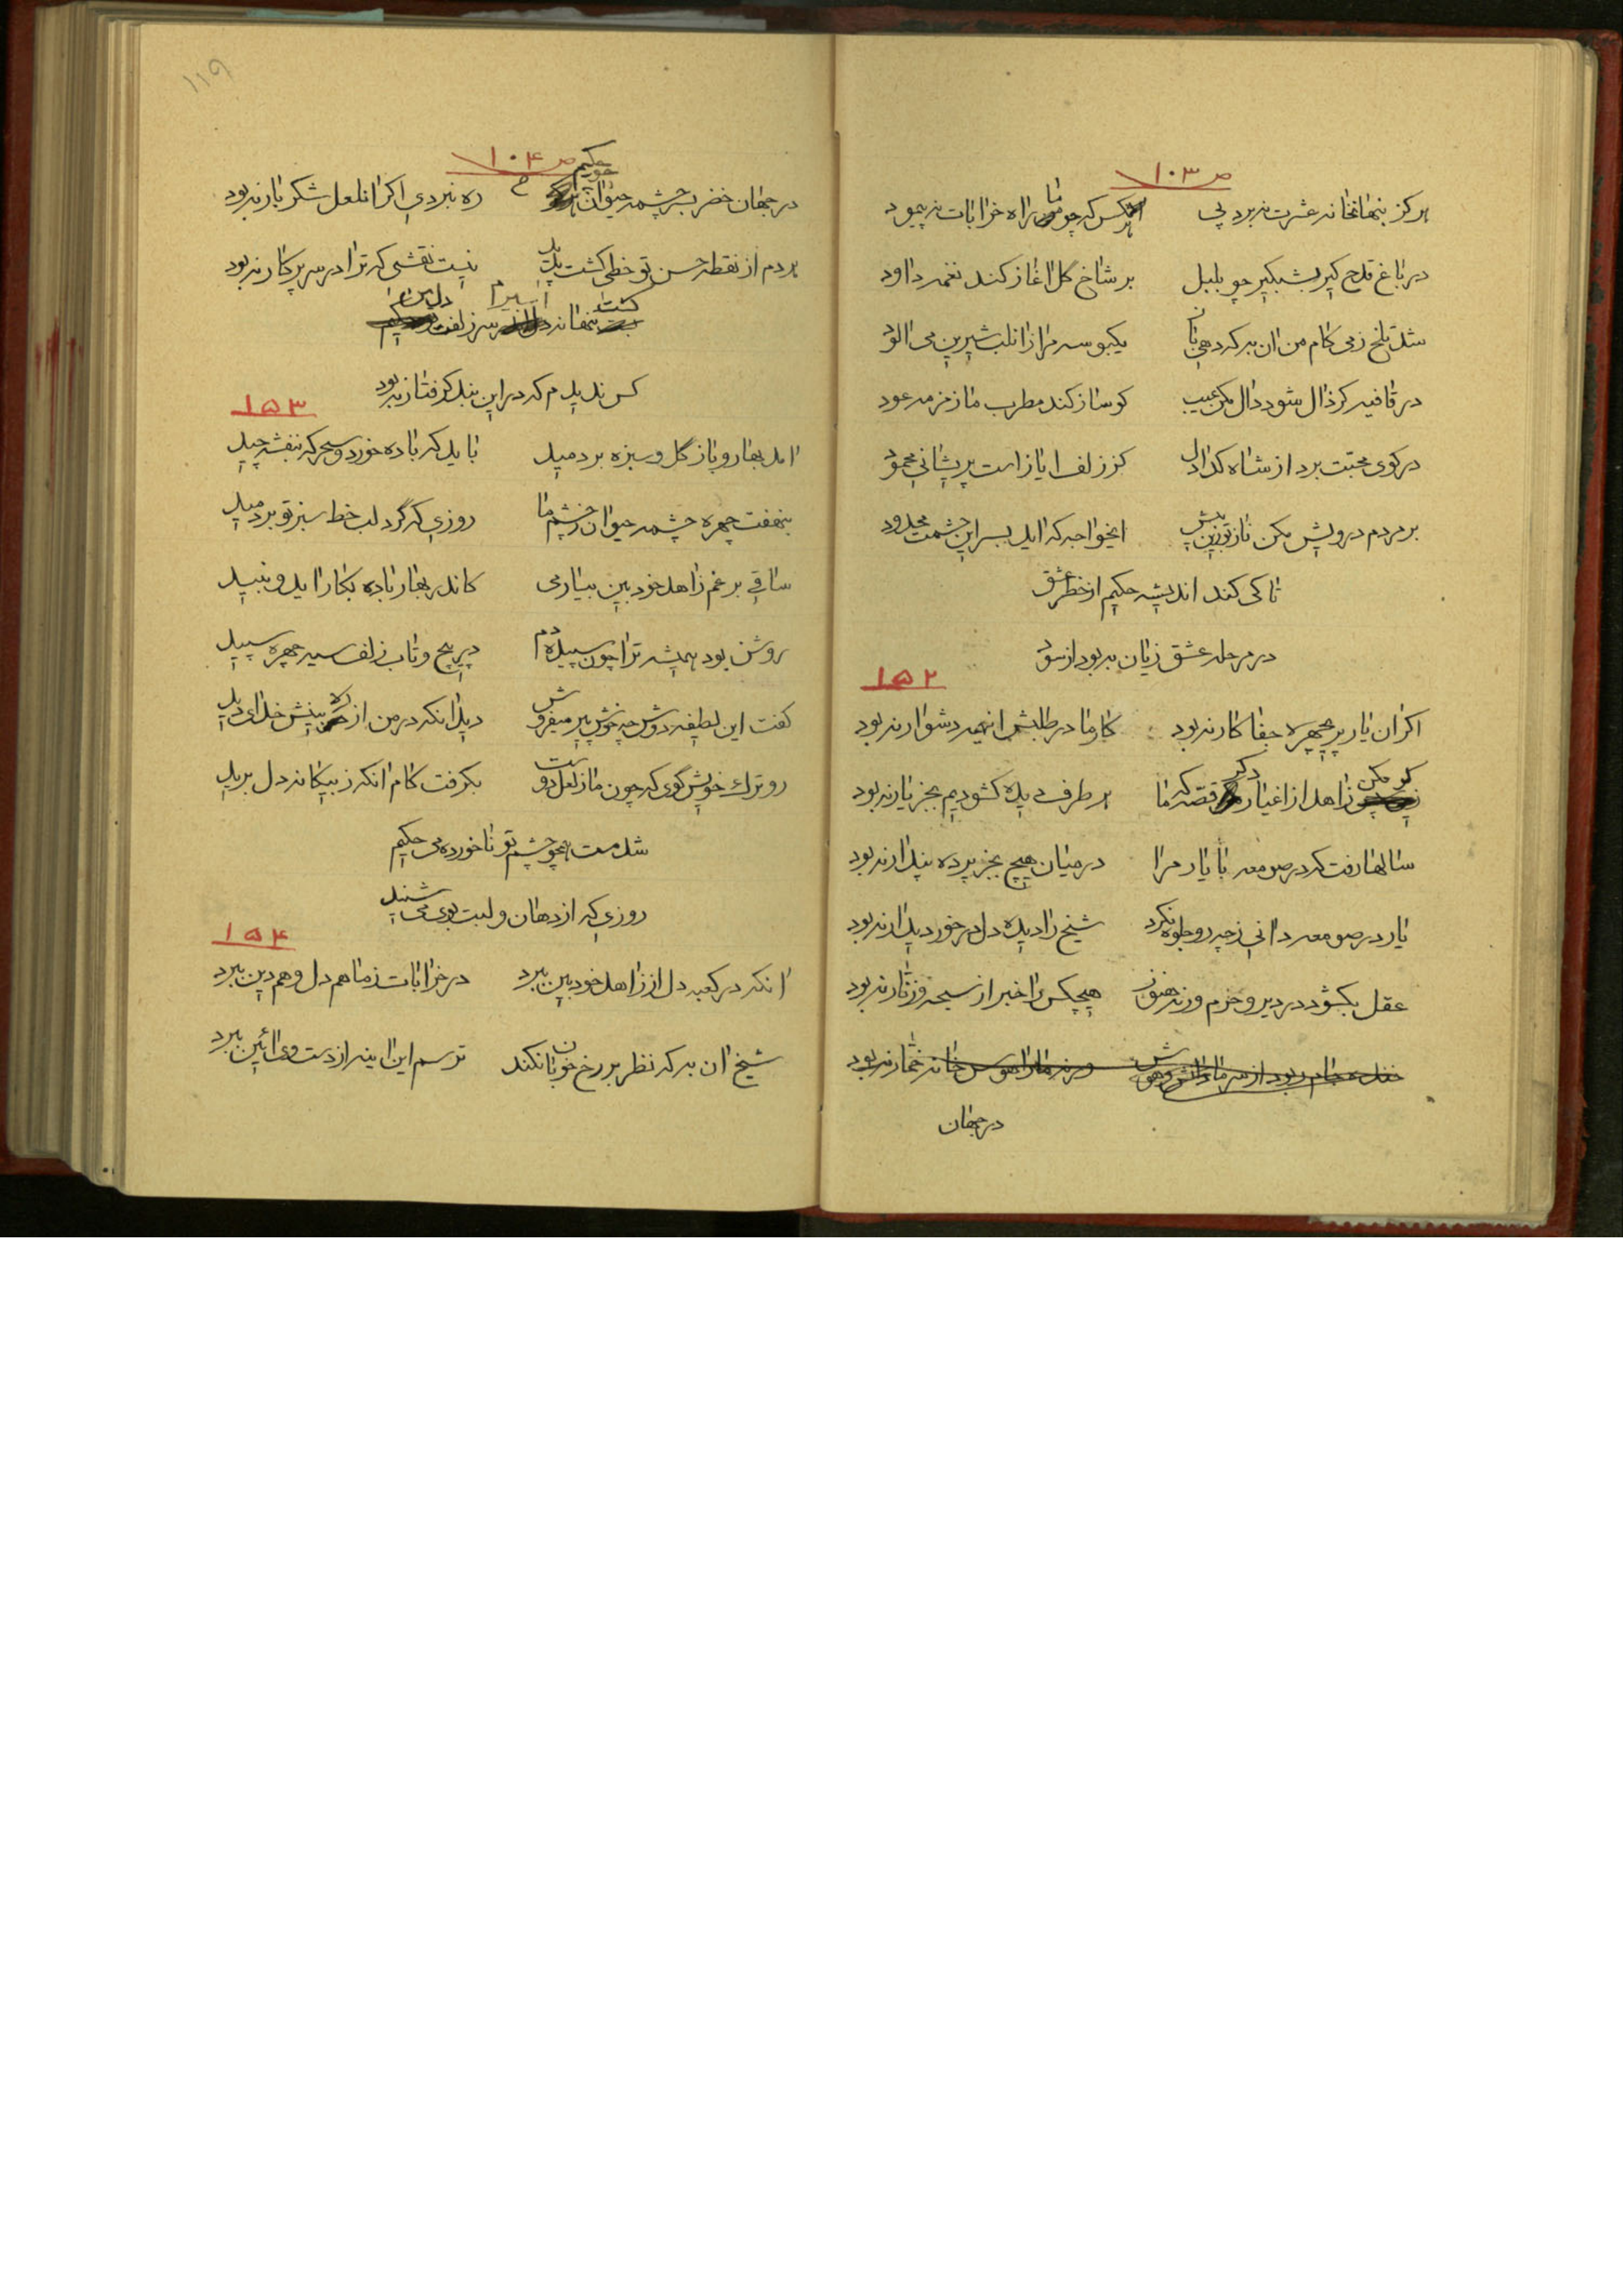 ص ۱۰۳
هرکز بنهانخانه عشرت نبرد پی    هرکس که چو ما راه خرابات نه پیمود
در باغ قدح کیر بشبکیر چو بلبل    بر شاخ کل اغاز کند نغمه داود
شد تلخ ز می کام من ان به که دهی    یکبوسه مرا زانلب شیرین می الود
در قافیه کر ذال شود دال مکن عیب    کو ساز کند مطرب ما زمزمه عود
در کوی محبت برد از شاه کدا دل    کز زلف ایاز است پریشانی محمود
بر مردم درویش مکن ناز ازین پیش    ایخواجه که اید بسر این حشمت
تا کی کند اندیشه حکیم از خطر عشق
در مرحله عشق زیان به بود از سود
۱۵۲
اکر ان یار پریچهره جفا کار نبود    کار ما در طلبش اینهمه دشوار نبود
کو مکن زاهد از اغیار دکر قصه که ما    هر طرف دیده کشودیم بجز یار نبود
سالها رفت که در صومعه با یار مرا    در میان هیچ بجز پرده پندار نبود
یار در صومعه دانی ز چه رو جلوه نکرد    شیخ را دیده دل در خور دیدار نبود
عقل بکشود در دیر و حرم ورنه هنوز    هیچکس را خبر از سبحه و زنار نبود
ورنه ما را هوس خانه خمار نبود
در جهان
۱۱۹
ص ۱۰۴
در جهان خضر بسر چشمه حیوان حکیم    ره نبردی اکر انلعل شکر بار نبود
هر دم از نقطه حسن تو خطی کشت پدید    نیست نقشی که ترا در سر پرکار نبود
کشت تنها نه اسیر سر زلفت دل من
کس ندیدم که در این بند کرفتار نبود
۱۵۳
امد بهار و باز گل و سبزه بر دمید    باید که باده خورد و سحرکه بنفشه چید
بنهفت چهره چشمه حیوان ز چشم ما    روزی که گرد لب خط سبز تو بر دمید
ساقی برغم زاهد خودبین بیار می    کاندر بهار باده بکار اید و نبید
روشن بود همیشه ترا چون سپیده دم    در پیچ و تاب زلف سیه چهره سپید
کفت این لطیفه دوش چه خوش پیر میفروش    دید انکه در من از ره بینش خدای دید
رو ترک خویش گوی که چون ما ز لعل دوست    بکرفت کام انکه ز بیکانه دل برید
شد مست همچو چشم تو ناخورده می حکیم
روزی که از دهان و لبت بوی می شنید
۱۵۴
انکه در کعبه دل از زاهد خودبین ببرد    در خرابات ز ما هم دل و هم دین ببرد
شیخ ان به که نظر بر رخ خوبان نکند    ترسم این اینه از دست وی ائین ببرد